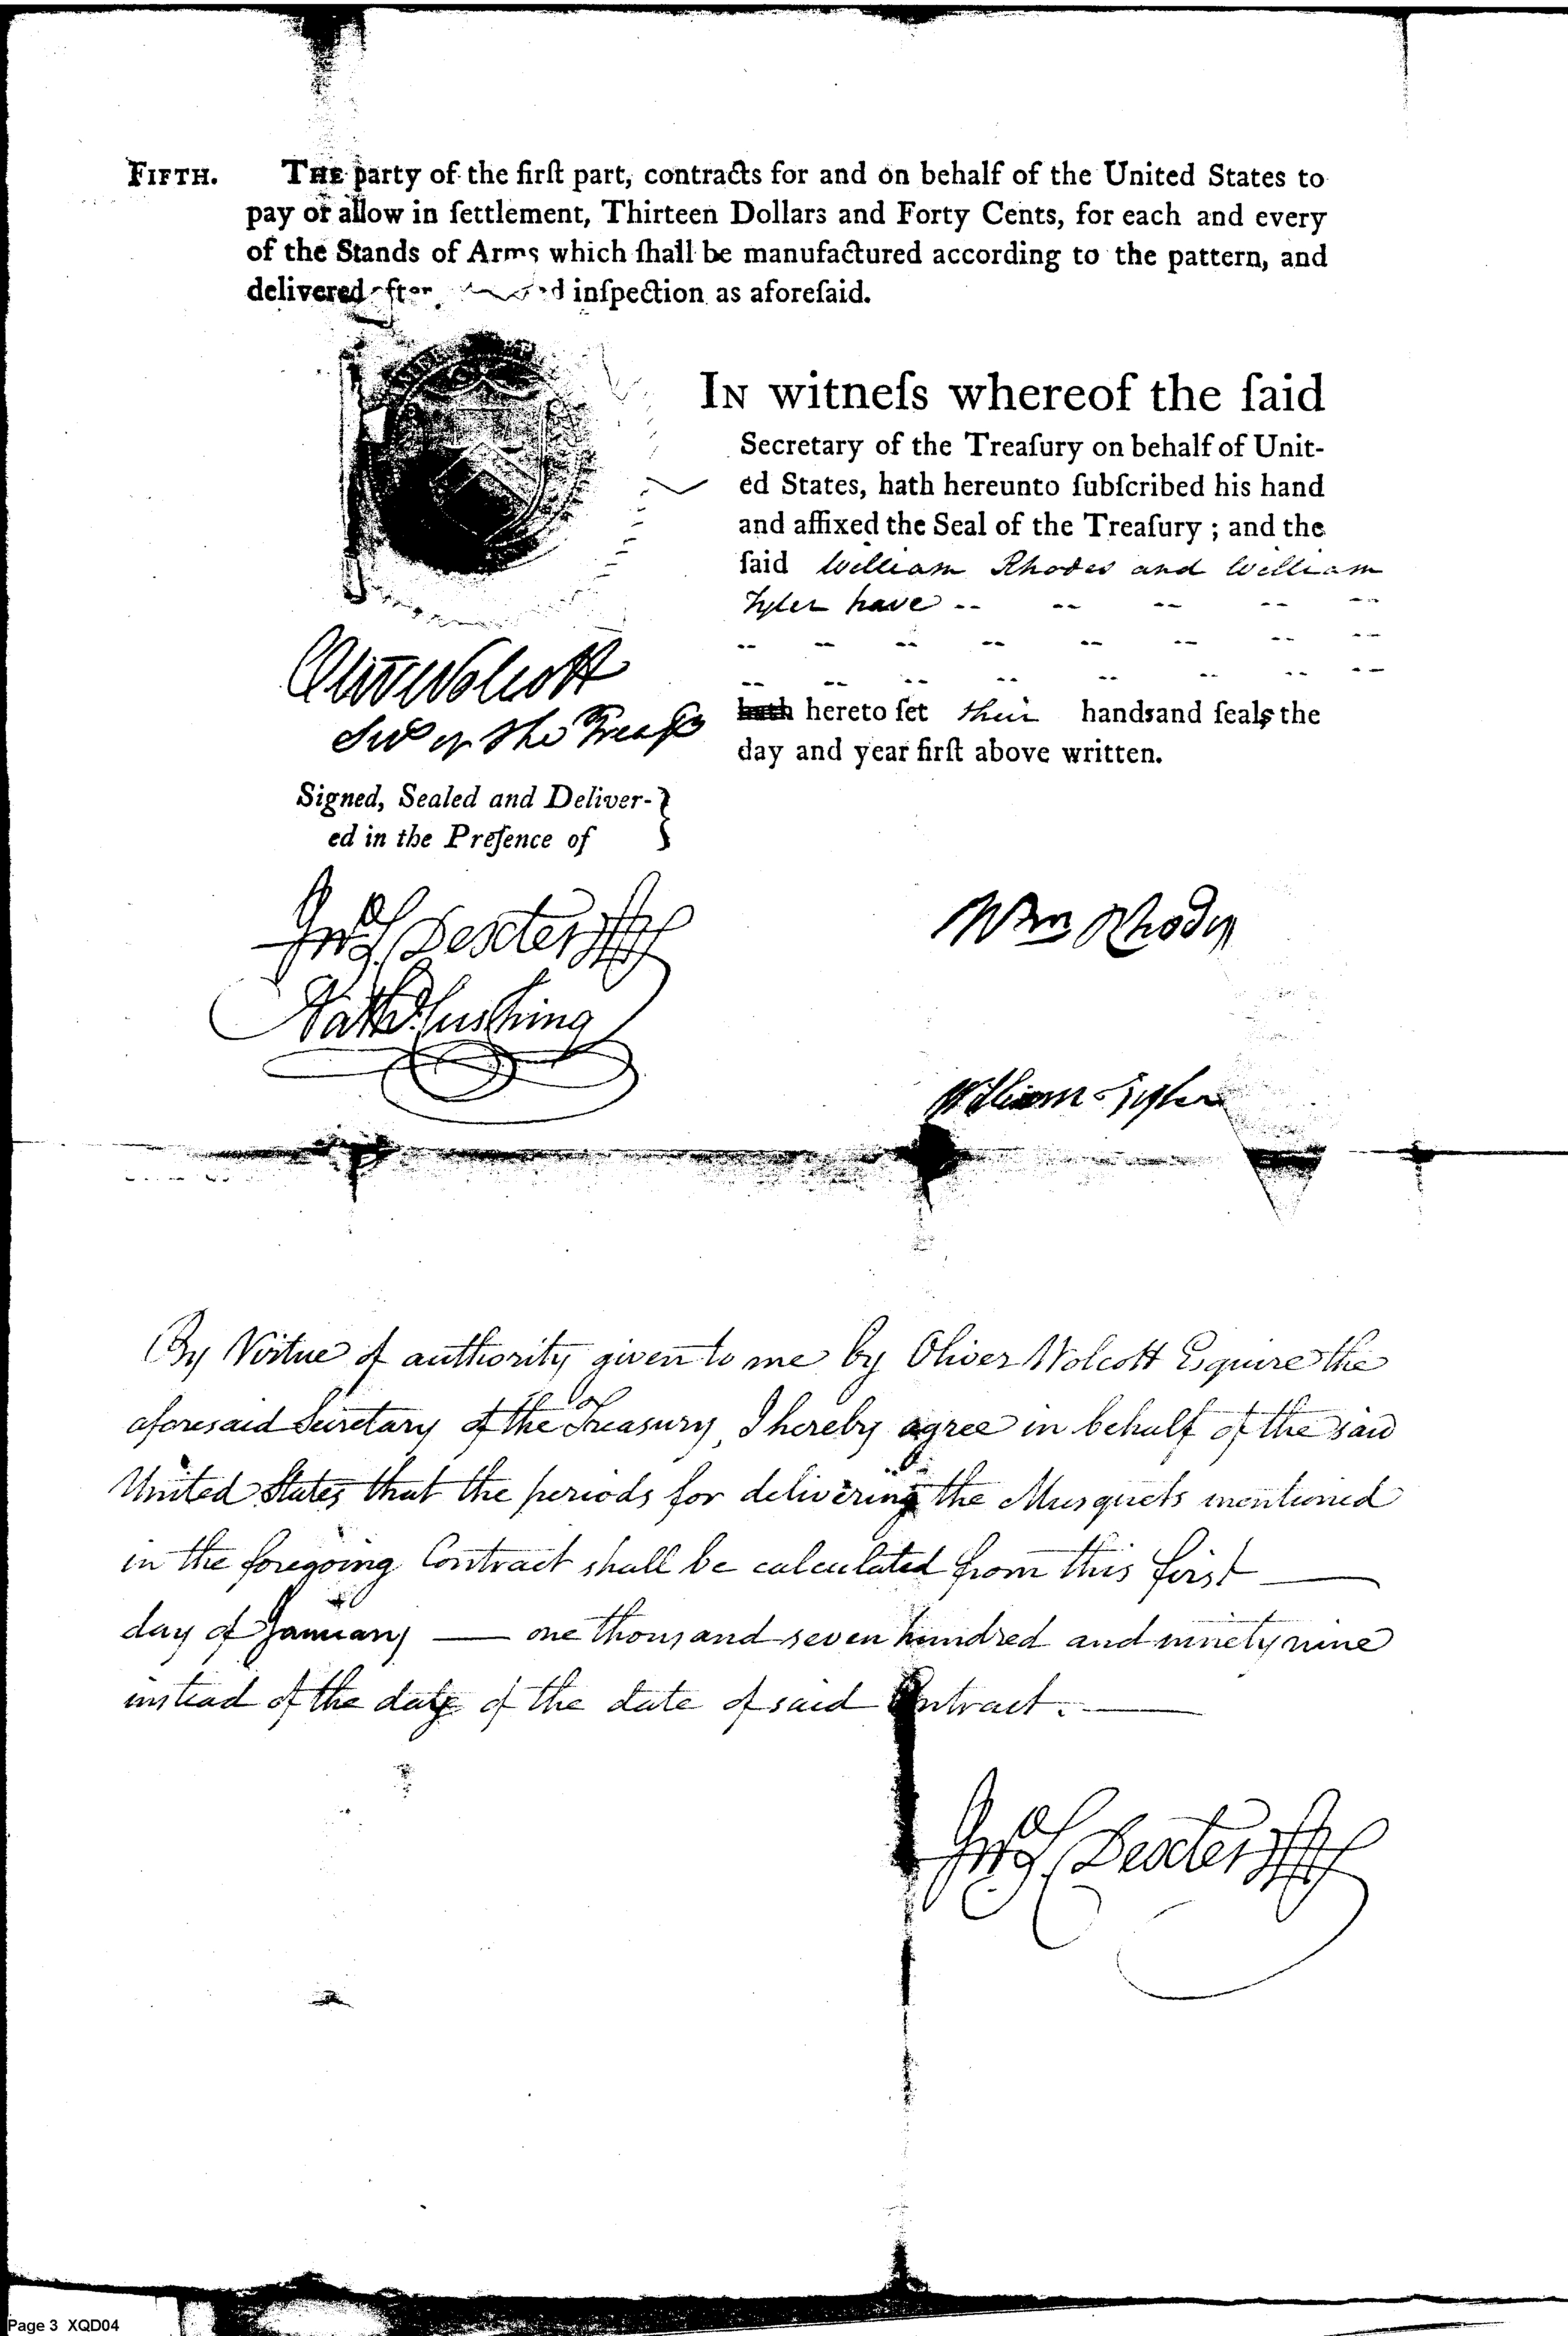 FIFTH. THE party of the firſt part, contracts for and on behalf of the United States to
pay or allow in ſettlement, Thirteen Dollars and Forty Cents, for each and every
of the Stands of Arms which ſhall be manufactured according to the pattern, and
delivered after inſpection as aforeſaid.
IN witneſs whereof the ſaid
Secretary of the Treaſury on behalf of Unit-
ed States, hath hereunto ſubſcribed his hand
and affixed the Seal of the Treaſury ; and the
ſaid William Rhodes and William
Tyler have -- -- -- -- --
-- -- -- -- -- -- -- --
-- -- -- -- -- -- -- --
hath hereto ſet their hands and ſeals the
day and year firſt above written.
Oliv Wolcott
Sec of the Treasy
Signed, Sealed and Deliver-
ed in the Preſence of
Jno S. Dexter
Nath Cushing
Wm Rhodes
William Tyler
By Virtue of authority given to me by Oliver Wolcott Esquire the
aforesaid Secretary of the Treasury, I hereby agree in behalf of the said
United States that the periods for delivering the Musquets mentioned
in the foregoing Contract shall be calculated from this first —
day of January — one thousand seven hundred and ninety nine
instead of the day of the date of said Contract. —
Jno S. Dexter
Page 3 XQD04